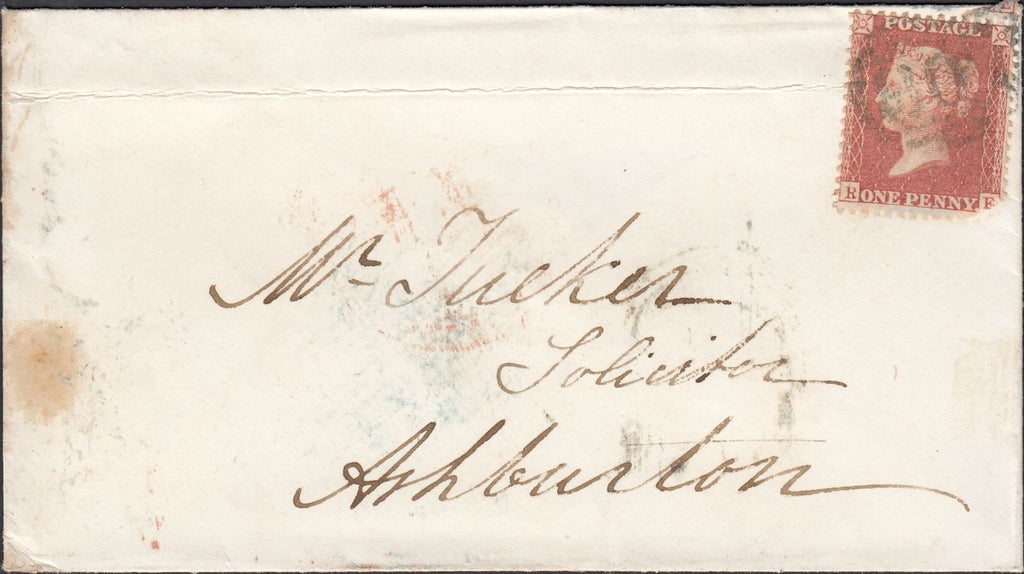 POSTAGE
R ONE PENNY F
Mr Tucker
Solicitor
Ashburton